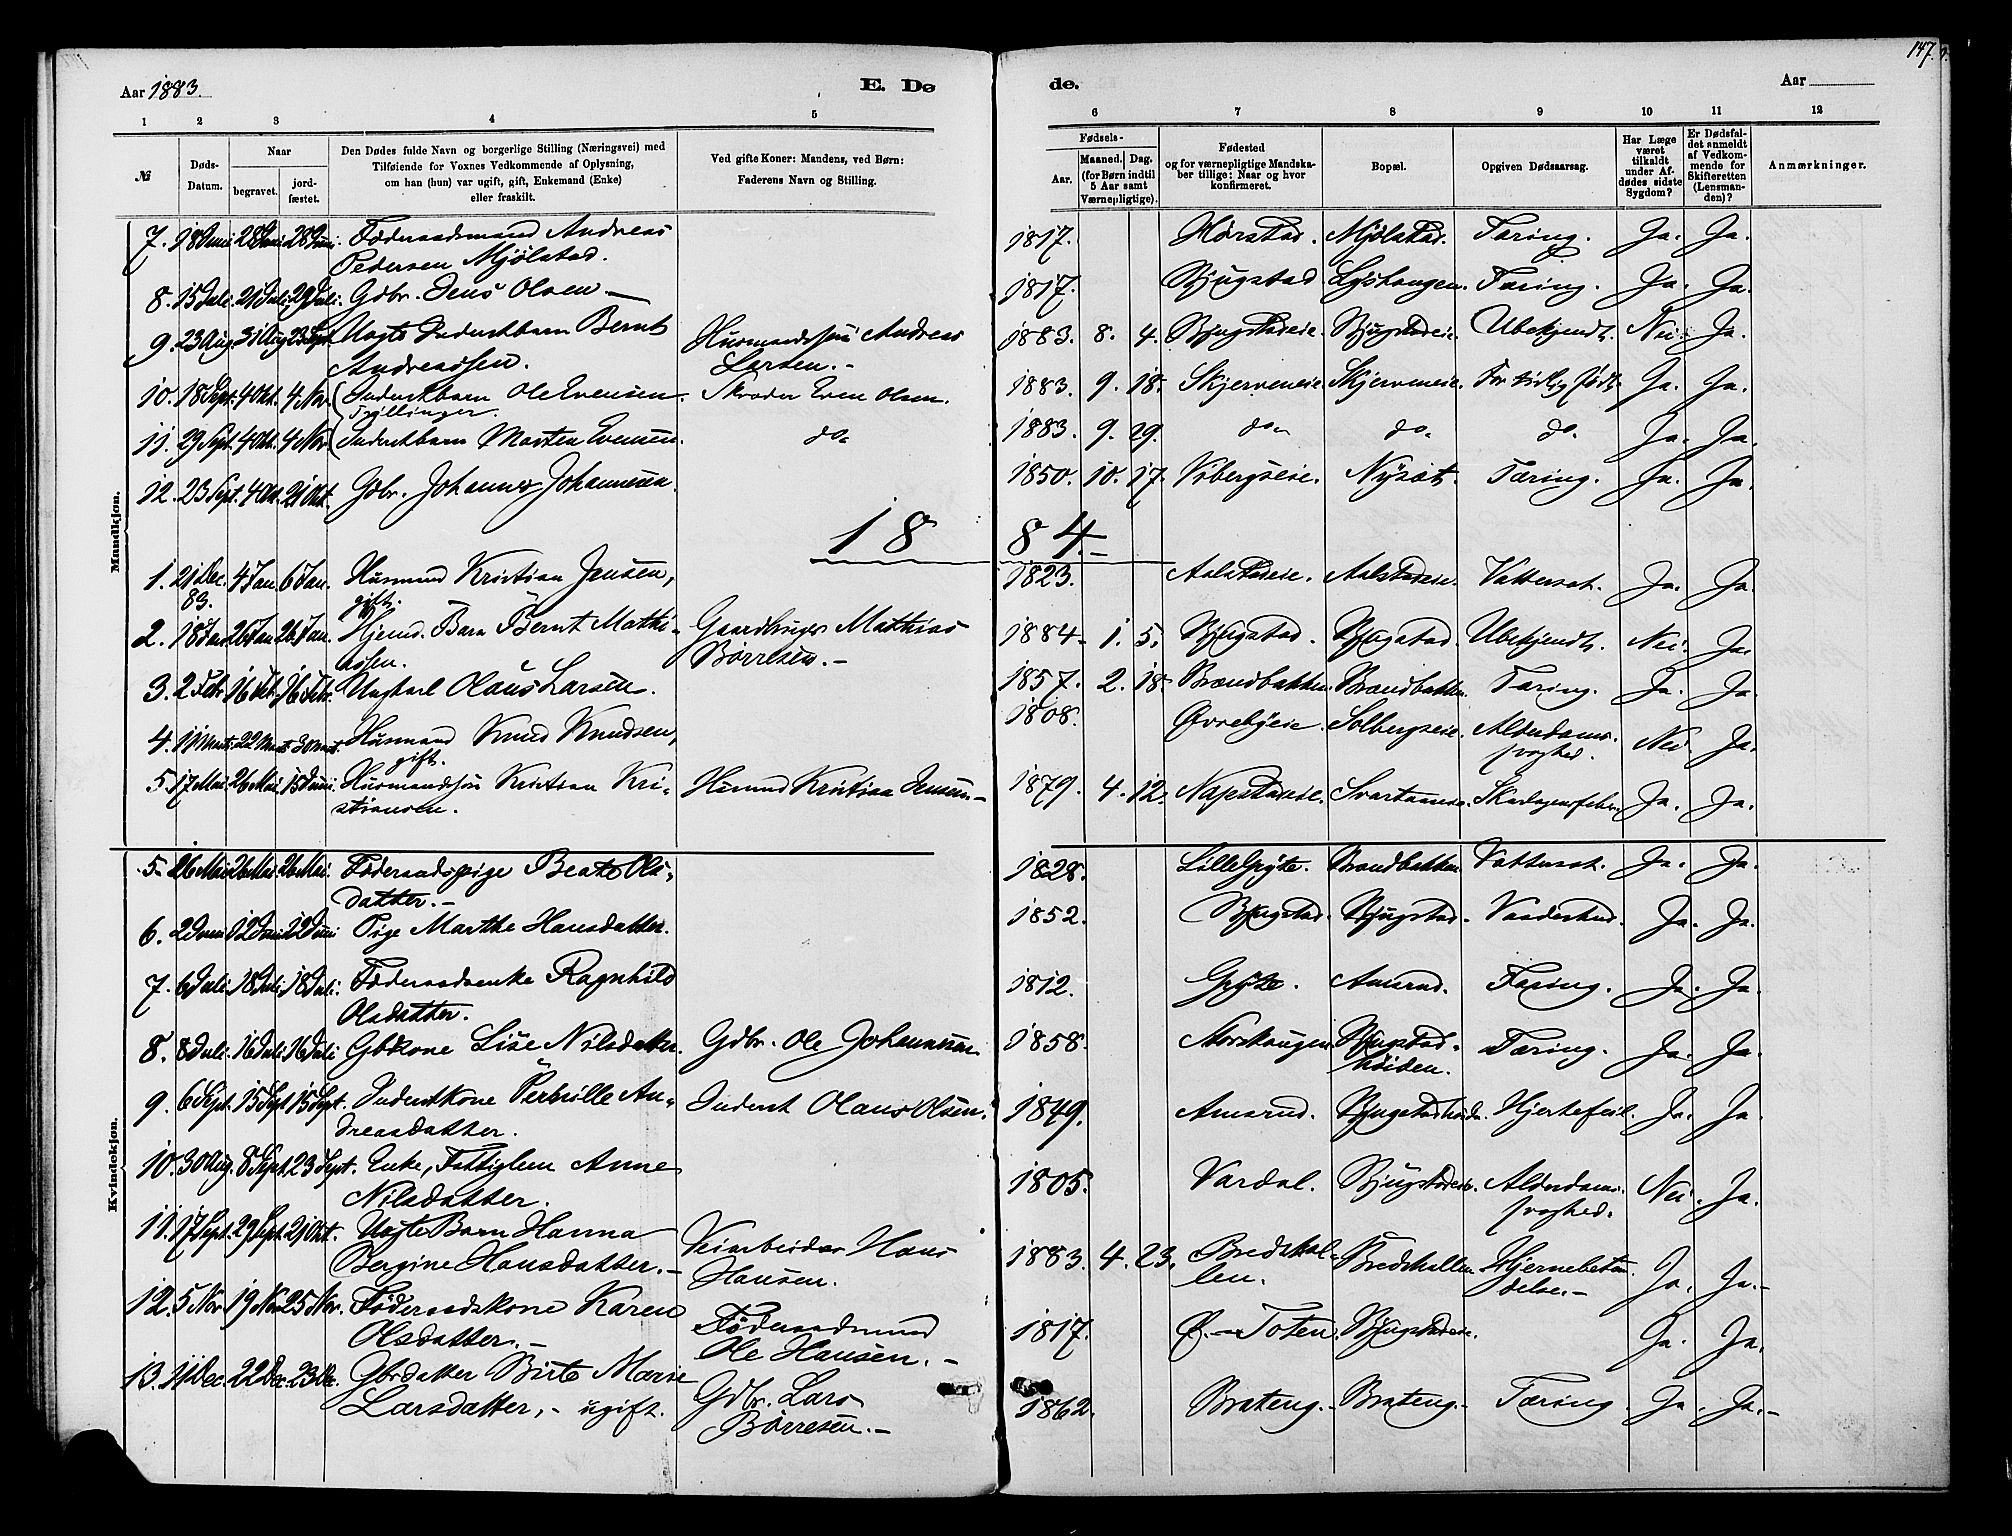 147.
Aar 1883.
E. Dø
de.
Aar
1 2 3 4 5 6 7 8 9 10 11 12
№
Døds-Datum.
Naar
begravet.
jord-fæstet.
Den Dødes fulde Navn og borgerlige Stilling (Næringsvei) med
Tilføiende for Voxnes Vedkommende af Oplysning,
om han (hun) var ugift, gift, Enkemand (Enke)
eller fraskilt.
Ved gifte Koner: Mandens, ved Børn:
Faderens Navn og Stilling.
Fødsels-
Aar.
Maaned. Dag.
(for Børn indtil
5 Aar samt
Værnepligtige).
Fødested
og for værnepligtige Mandska-
ber tillige: Naar og hvor
konfirmeret.
Bopæl.
Opgiven Dødsaarsag.
Har Læge
været
tilkaldt
under Af-
dødes sidste
Sygdom?
Er Dødsfal-
det anmeldt
af Vedkom-
mende for
Skifteretten
(Lensman-
den)?
Anmærkninger.
Mandkjøn.
7. 18 Juni 28 Juni 28 Juni. Föderaadsmand Andreas 1817. Hörstad. Mjölstad. Tæring. Ja. Ja.
Pedersen Mjölstad.
8. 15 Juli. 21 Juli. 29 Juli. Gdbr. Jens Olsen 1817. Bjugstad Tæring. Ja. Ja.
9. 23 Aug. 31 Aug 23 Sept. Uægte Inderstbarn Bernt Husmandssön Andreas 1883. 8. 4. Bjugstadeie. Bjugstadeie. Ubekjendt. Nei. Ja.
Andreassen. Larsen.-
10. 18 Sept. 4 Okt. 4 Nov. (Inderstbarn Ole Evensen. Skræder Even Olsen. 1883. 9. 18. Skjerveneie. Skjerveneie. For tidlig födt. Ja. Ja.
Tvillinger.
11. 29 Sept. 4 Okt. 4 Nov (Inderstbarn Marten Evensen. do. 1883. 9. 29. do. do. do. Ja. Ja.
12. 23 Sept. 4 Okt. 21 Okt. Gdbr. Johannes Johannesen. 1850. 10. 17. Vibergseie. Nysæt. Tæring. Ja. Ja.
1884.
1. 21 Dec. 83. 4 Jan. 6 Jan. Husmand Kristian Jensen, 1823. Aalstadeie. Aalstadeie. Vattersot. Ja. Ja.
gift.
2. 18 Jan. 26 Jan. 26 Jan. Hjemd. Barn Bernt Mathi- Gaardbruger Mathias 1884. 1. 5. Bjugstad. Bjugstad. Ubekjendt. Nei. Ja.
assen. Börresen.-
3. 2 Febr. 16 Febr. 16 Febr. Ungkarl Olaus Larsen. 1857. 2. 18. Brændbakken. Brændbakken. Tæring. Ja. Ja.
4. 11 Marts. 22 Marts. 30 Marts. Husmand Knud Knudsen, 1808. Øvrebyeie. Solbergseie. Alderdoms- Nei Ja.
gift. svaghed.
5. 17 Mai. 26 Mai. 15 Juni. Husmandssön Kristian Kri- Husmd Kristian Jensen- 1879. 4. 12. Napstadeie. Skarlagensfeber. Ja. Ja.
stiansen.
Kvindekjøn.
5. 16 Mai 26 Mai. 26 Mai. Föderaadspige Beate Ols- 1828. Lille Gryte. Brændbakken Vattersot. Ja. Ja.
datter.-
6. 2 Juni 12 Juni 22 Juni Pige Marthe Hansdatter. 1852. Bjugstad. Bjugstad. Ja. Ja.
7. 6 Juli. 18 Juli. 18 Juli. Föderaadsenke Ragnhild 1812. Gryte. Amrud. Tæring. Ja. Ja.
Olsdatter.
8. 8 Juli. 16 Juli. 16 Juli Gbkone Lise Nilsdatter. Gdbr. Ole Johannesen 1858. Morskaugen Bjugstad- Tæring. Ja. Ja.
höiden.
9. 6 Sept. 15 Sept 15 Sept. Inderstkone Pernille An- Inderst Olaus Olsen. 1849. Amrud. Bjugstadhöiden. Hjertefeil. Ja. Ja.
dreasdatter.
10. 30 Aug. 8 Sept. 23 Sept. Enke, Fattiglem Anne 1805. Vardal. Bjugstadeie. Alderdoms- Nei. Ja.
Nilsdatter. svaghed.
11. 17 Sept. 29 Sept. 21 Okt. Uægte Barn Hanna Veiarbeider Hans 1883. 4. 23. Bredskal- Bredskallen Hjernebetæn- Ja. Ja.-
Bergine Hansdatter.- Hansen. len. delse.-
12. 5 Nov. 19 Nov. 25 Nov. Föderaadskone Karen Föderaadsmand 1817. Ø.-Toten. Bjugstadeie. Ja. Ja.
Olsdatter.- Ole Hansen.-
13. 11 Dec. 22 Dec. 23 De. Gbrdatter Birte Marie Gdbr. Lars 1862. Brateng.- Brateng. Tæring Ja. Ja.-
Larsdatter,- ugift. Börresen.-